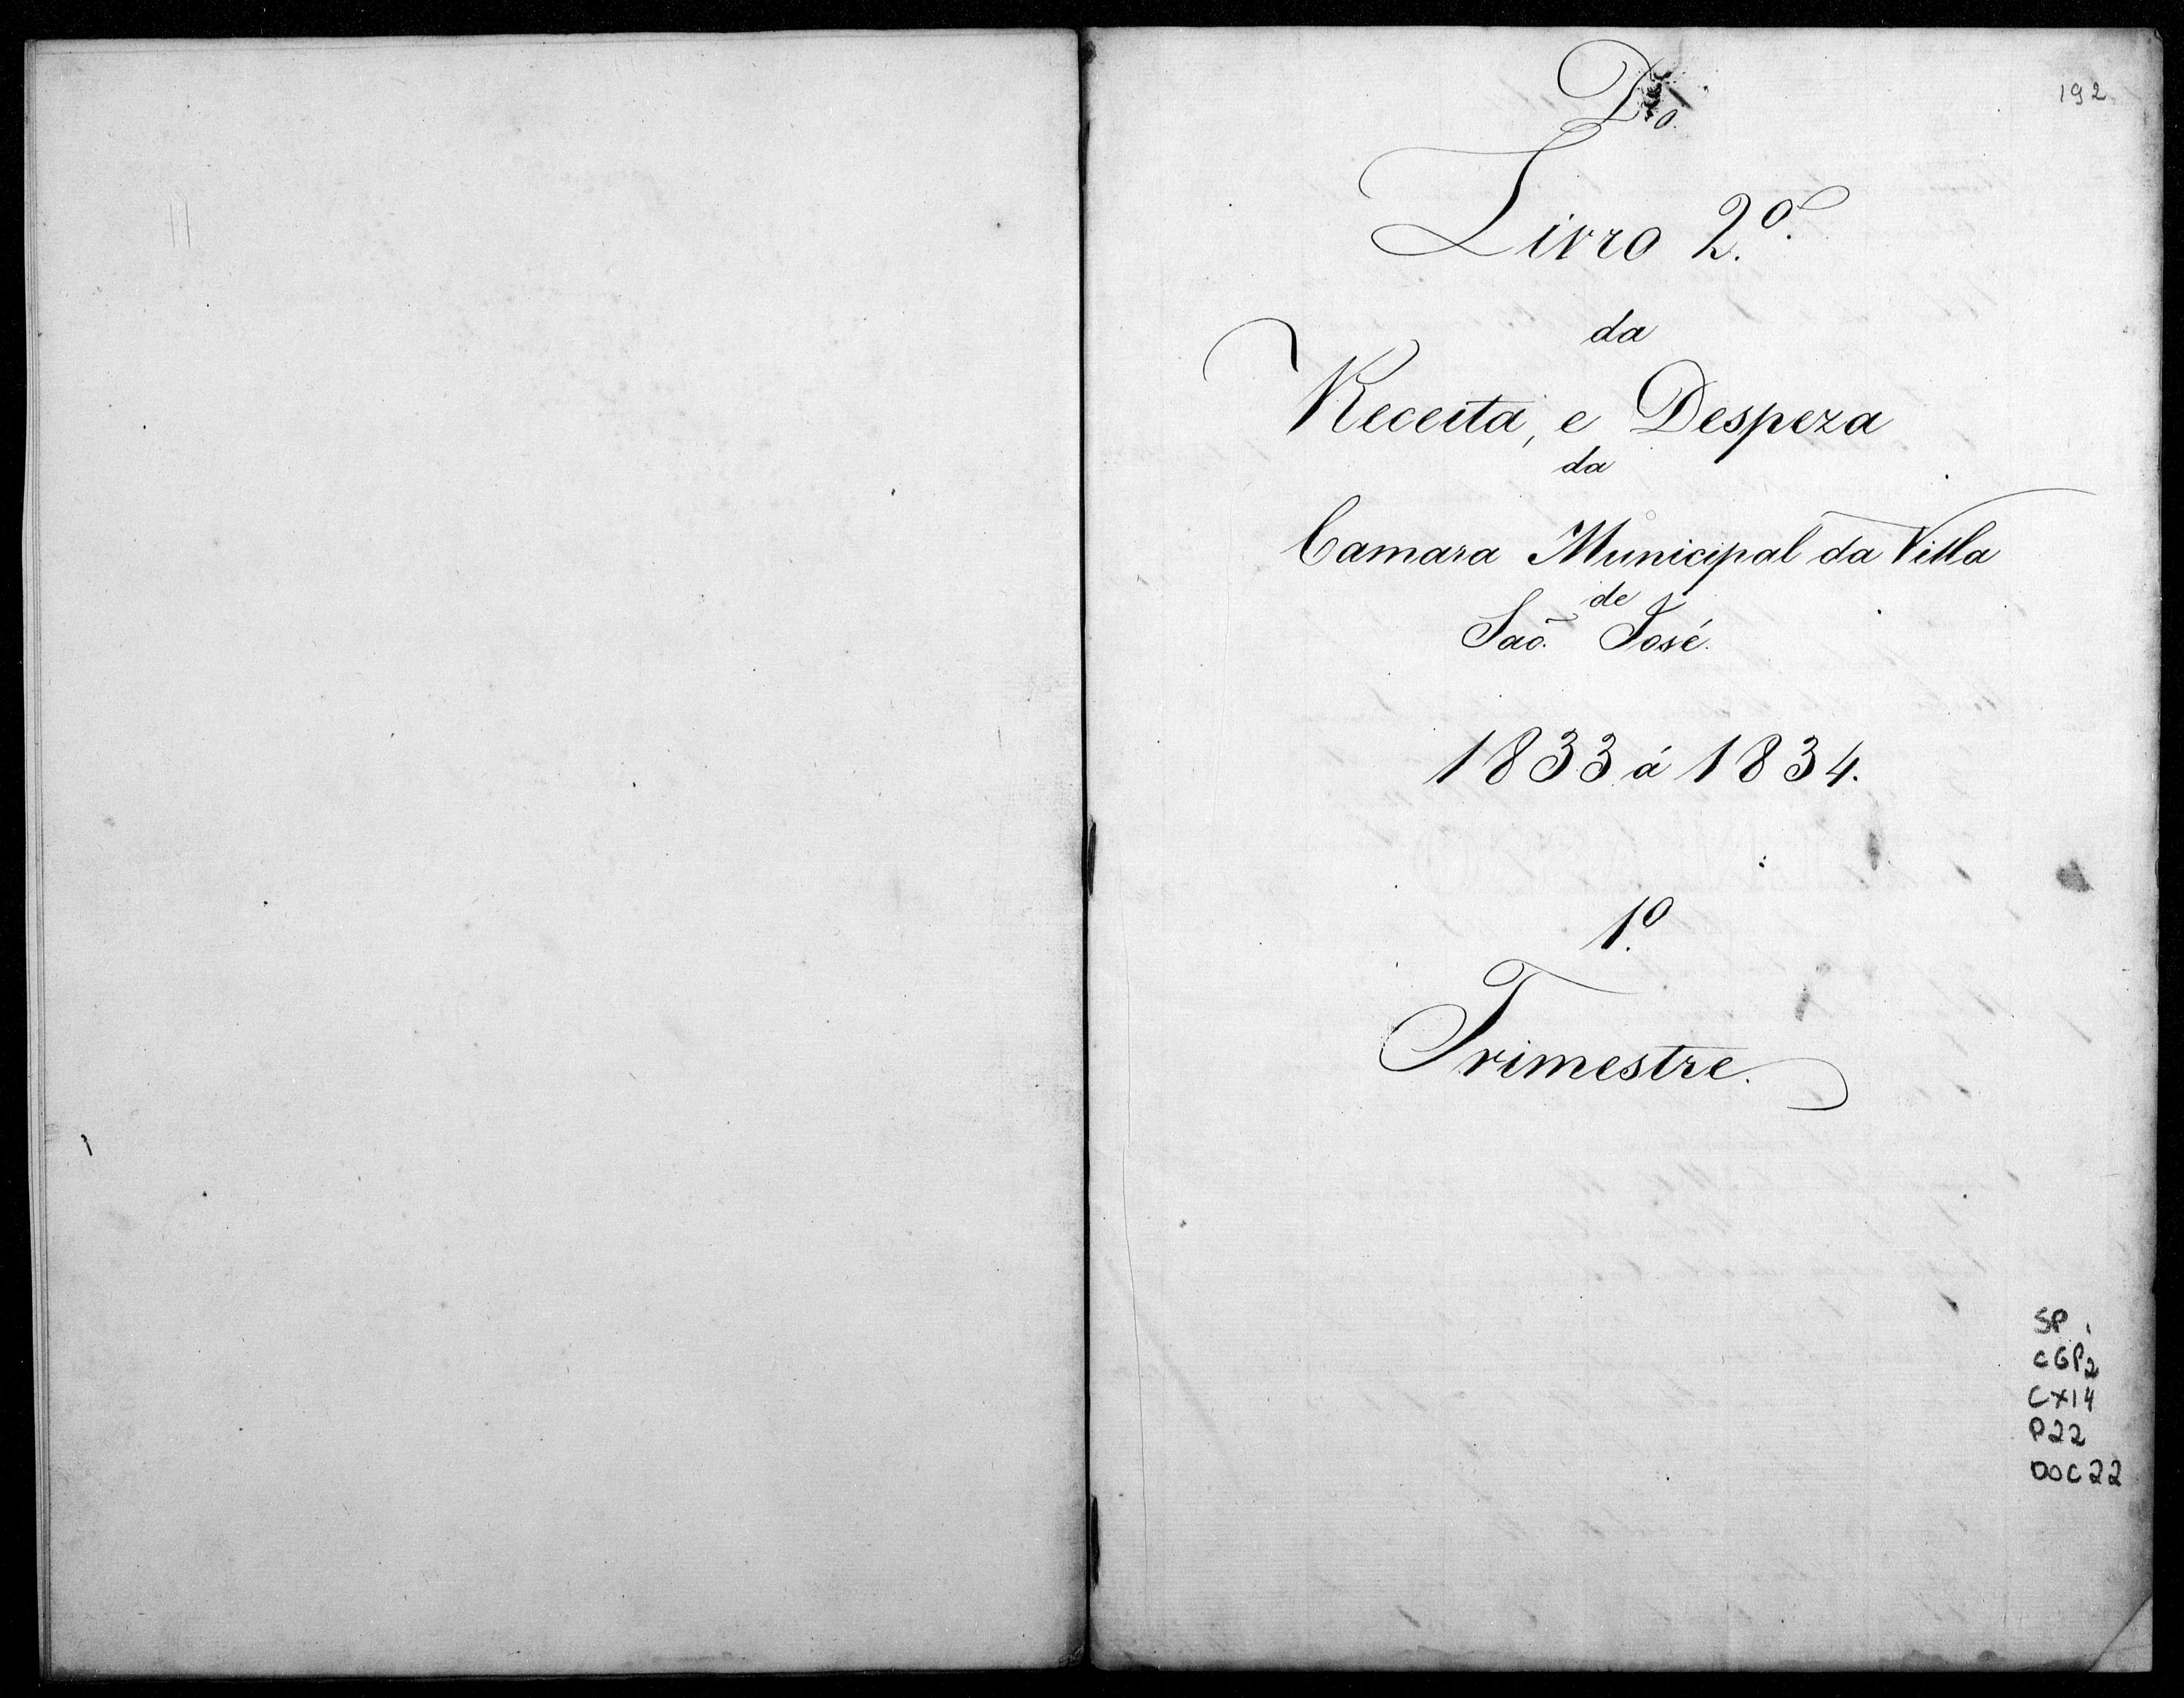 192
Do.
Livro 2º.
da
Receita, e Despeza
da
Camara Municipal da Villa
de
Saõ. José.
1833 á 1834.
1º.
Trimestre.
SP
CGP2
CX14
P22
DOC22